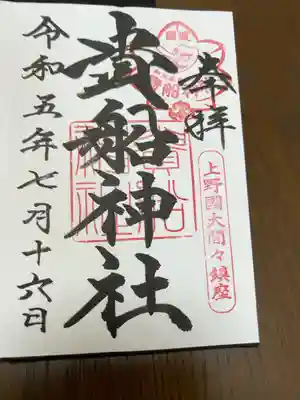 奉拝
上野國大間々鎮座
貴船神社
令和五年七月十六日